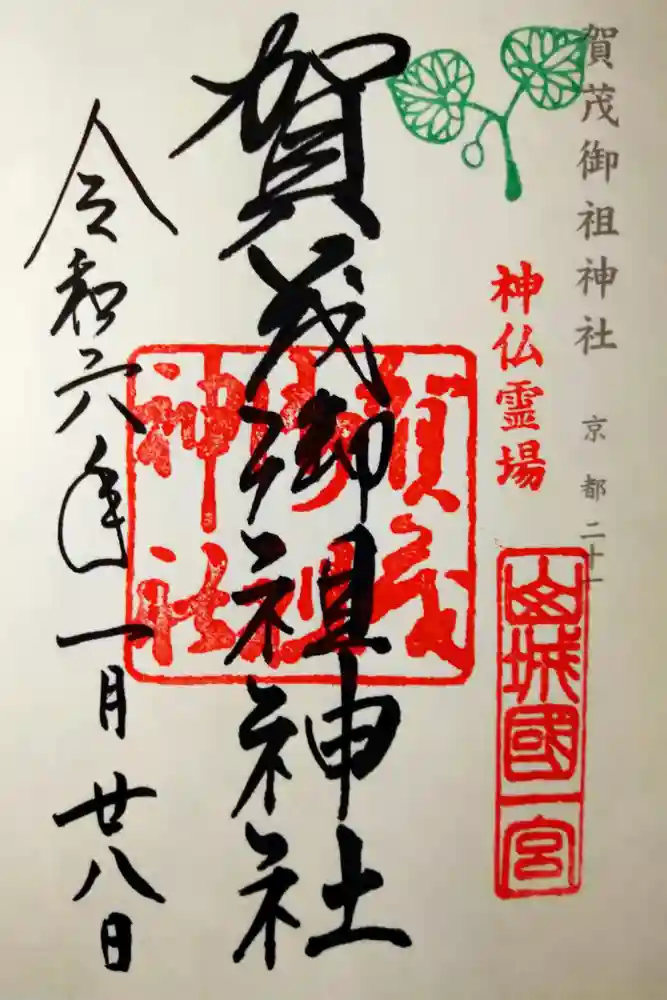 賀茂御祖神社 京都二十一
神仏霊場
山城國一宮
賀茂御祖神社
賀茂
御祖
神社
令和六年一月廿八日